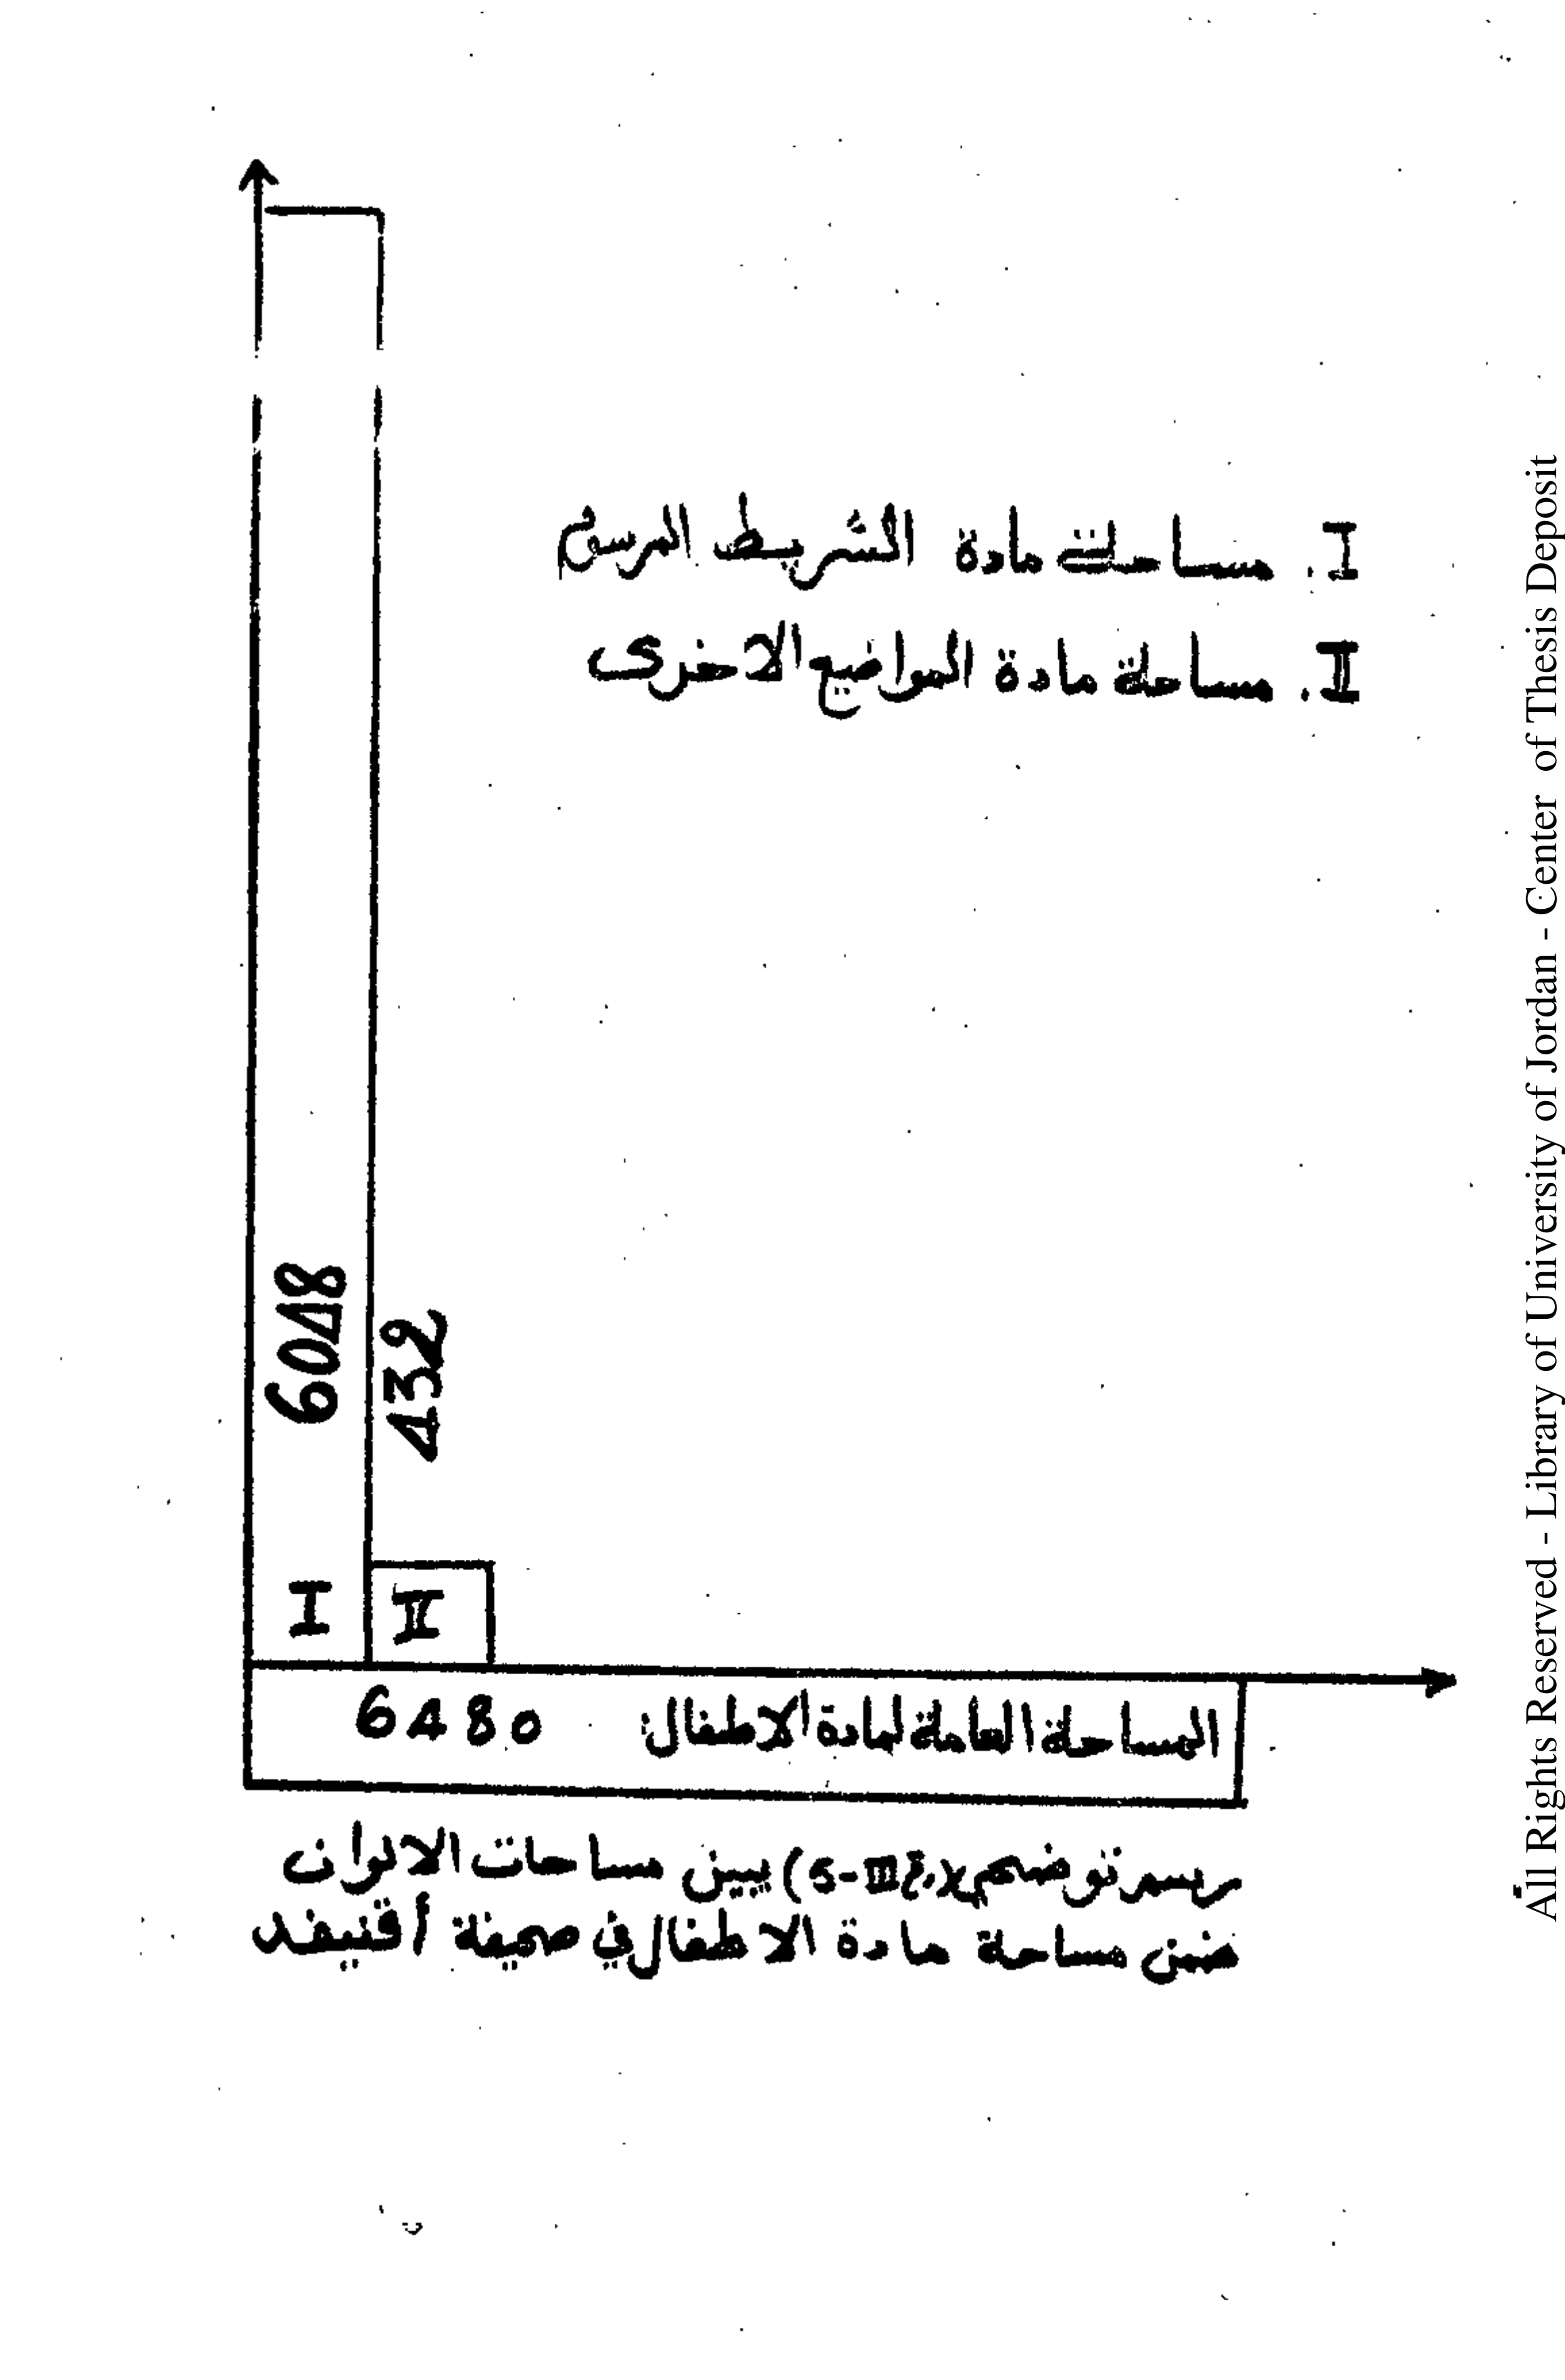 I. مساحة مادة الشريط المرسوم
II. مساحة مادة المواضيع الاخرى
6048
432
I
II
المساحة العامة لمادة الاطفال: 6480
رسم توضيحي (رقم III-5) يبين مساحات الالوان
ضمن مساحة مادة الاطفال في صحيفة
All Rights Reserved - Library of University of Jordan - Center of Thesis Deposit